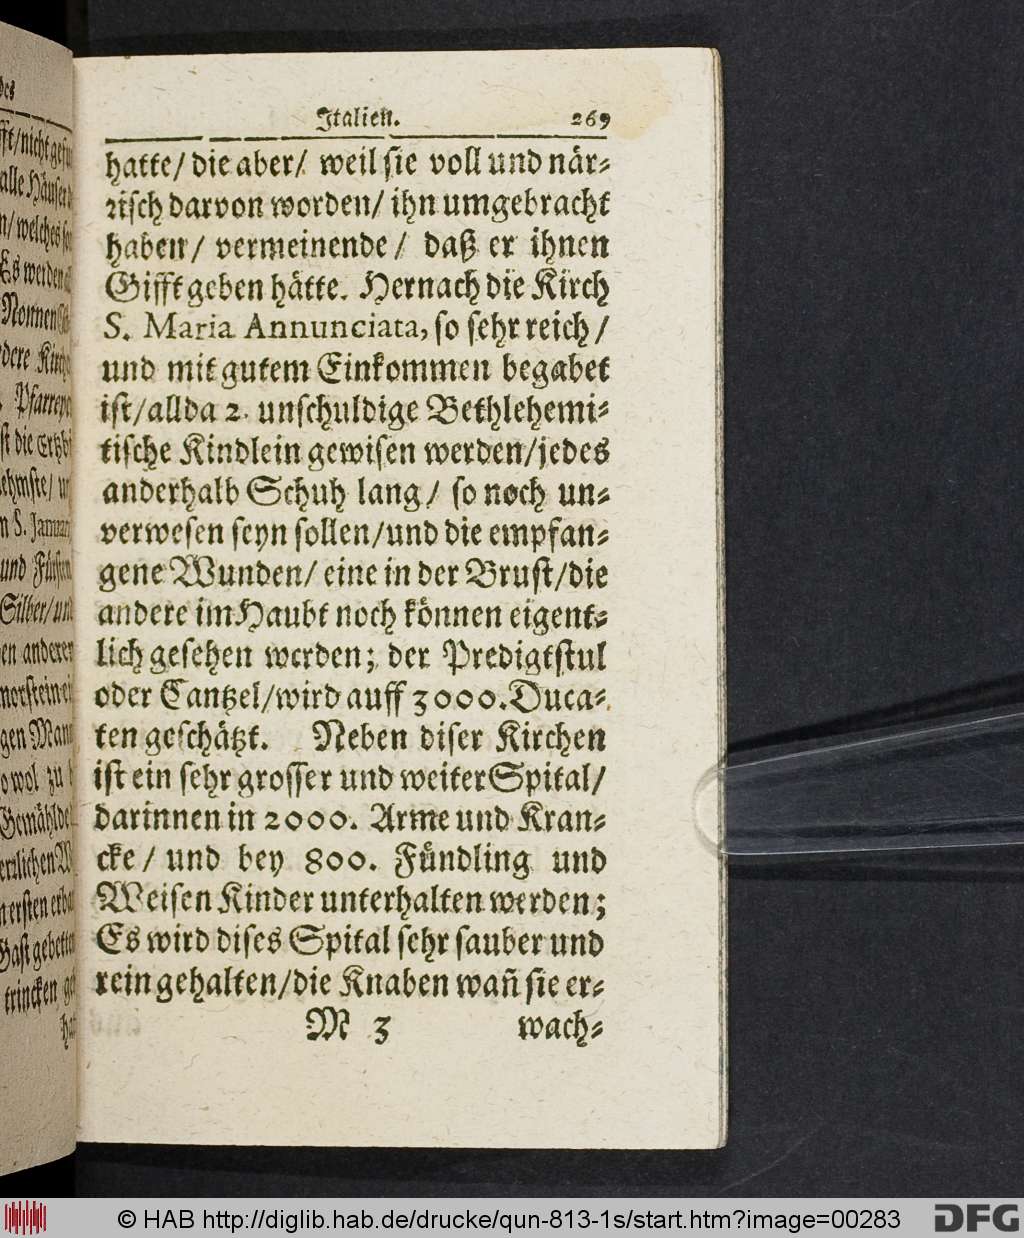 Italien. 269
hatte/ die aber/ weil sie voll und när-
risch darvon worden/ ihn umgebracht
haben/ vermeinende/ daß er ihnen
Gifft geben hätte. Hernach die Kirch
S. Maria Annunciata, so sehr reich/
und mit gutem Einkommen begabet
ist/allda 2. unschuldige Bethlehemi-
tische Kindlein gewisen werden/jedes
anderhalb Schuh lang/ so noch un-
verwesen seyn sollen/und die empfan-
gene Wunden/ eine in der Brust/die
andere im Haubt noch können eigent-
lich gesehen werden; der Predigtstul
oder Cantzel/wird auff 3000. Duca-
ten geschätzt. Neben diser Kirchen
ist ein sehr grosser und weiter Spital/
darinnen in 2000. Arme und Kran-
cke/ und bey 800. Fündling und
Weisen Kinder unterhalten werden;
Es wird dises Spital sehr sauber und
rein gehalten/die Knaben wañ sie er-
M 3 wach-
des
nicht
alle Häuser
/welches
Es werden
Nonnen
Pfarrey
st die Ertzbi
n S. Januar
und Fürsten
Silber/und
en anderen
gen Mann
owol zu
Gemählde
Gast gebetten
trincken
© HAB http://diglib.hab.de/drucke/qun-813-1s/start.htm?image=00283 DFG